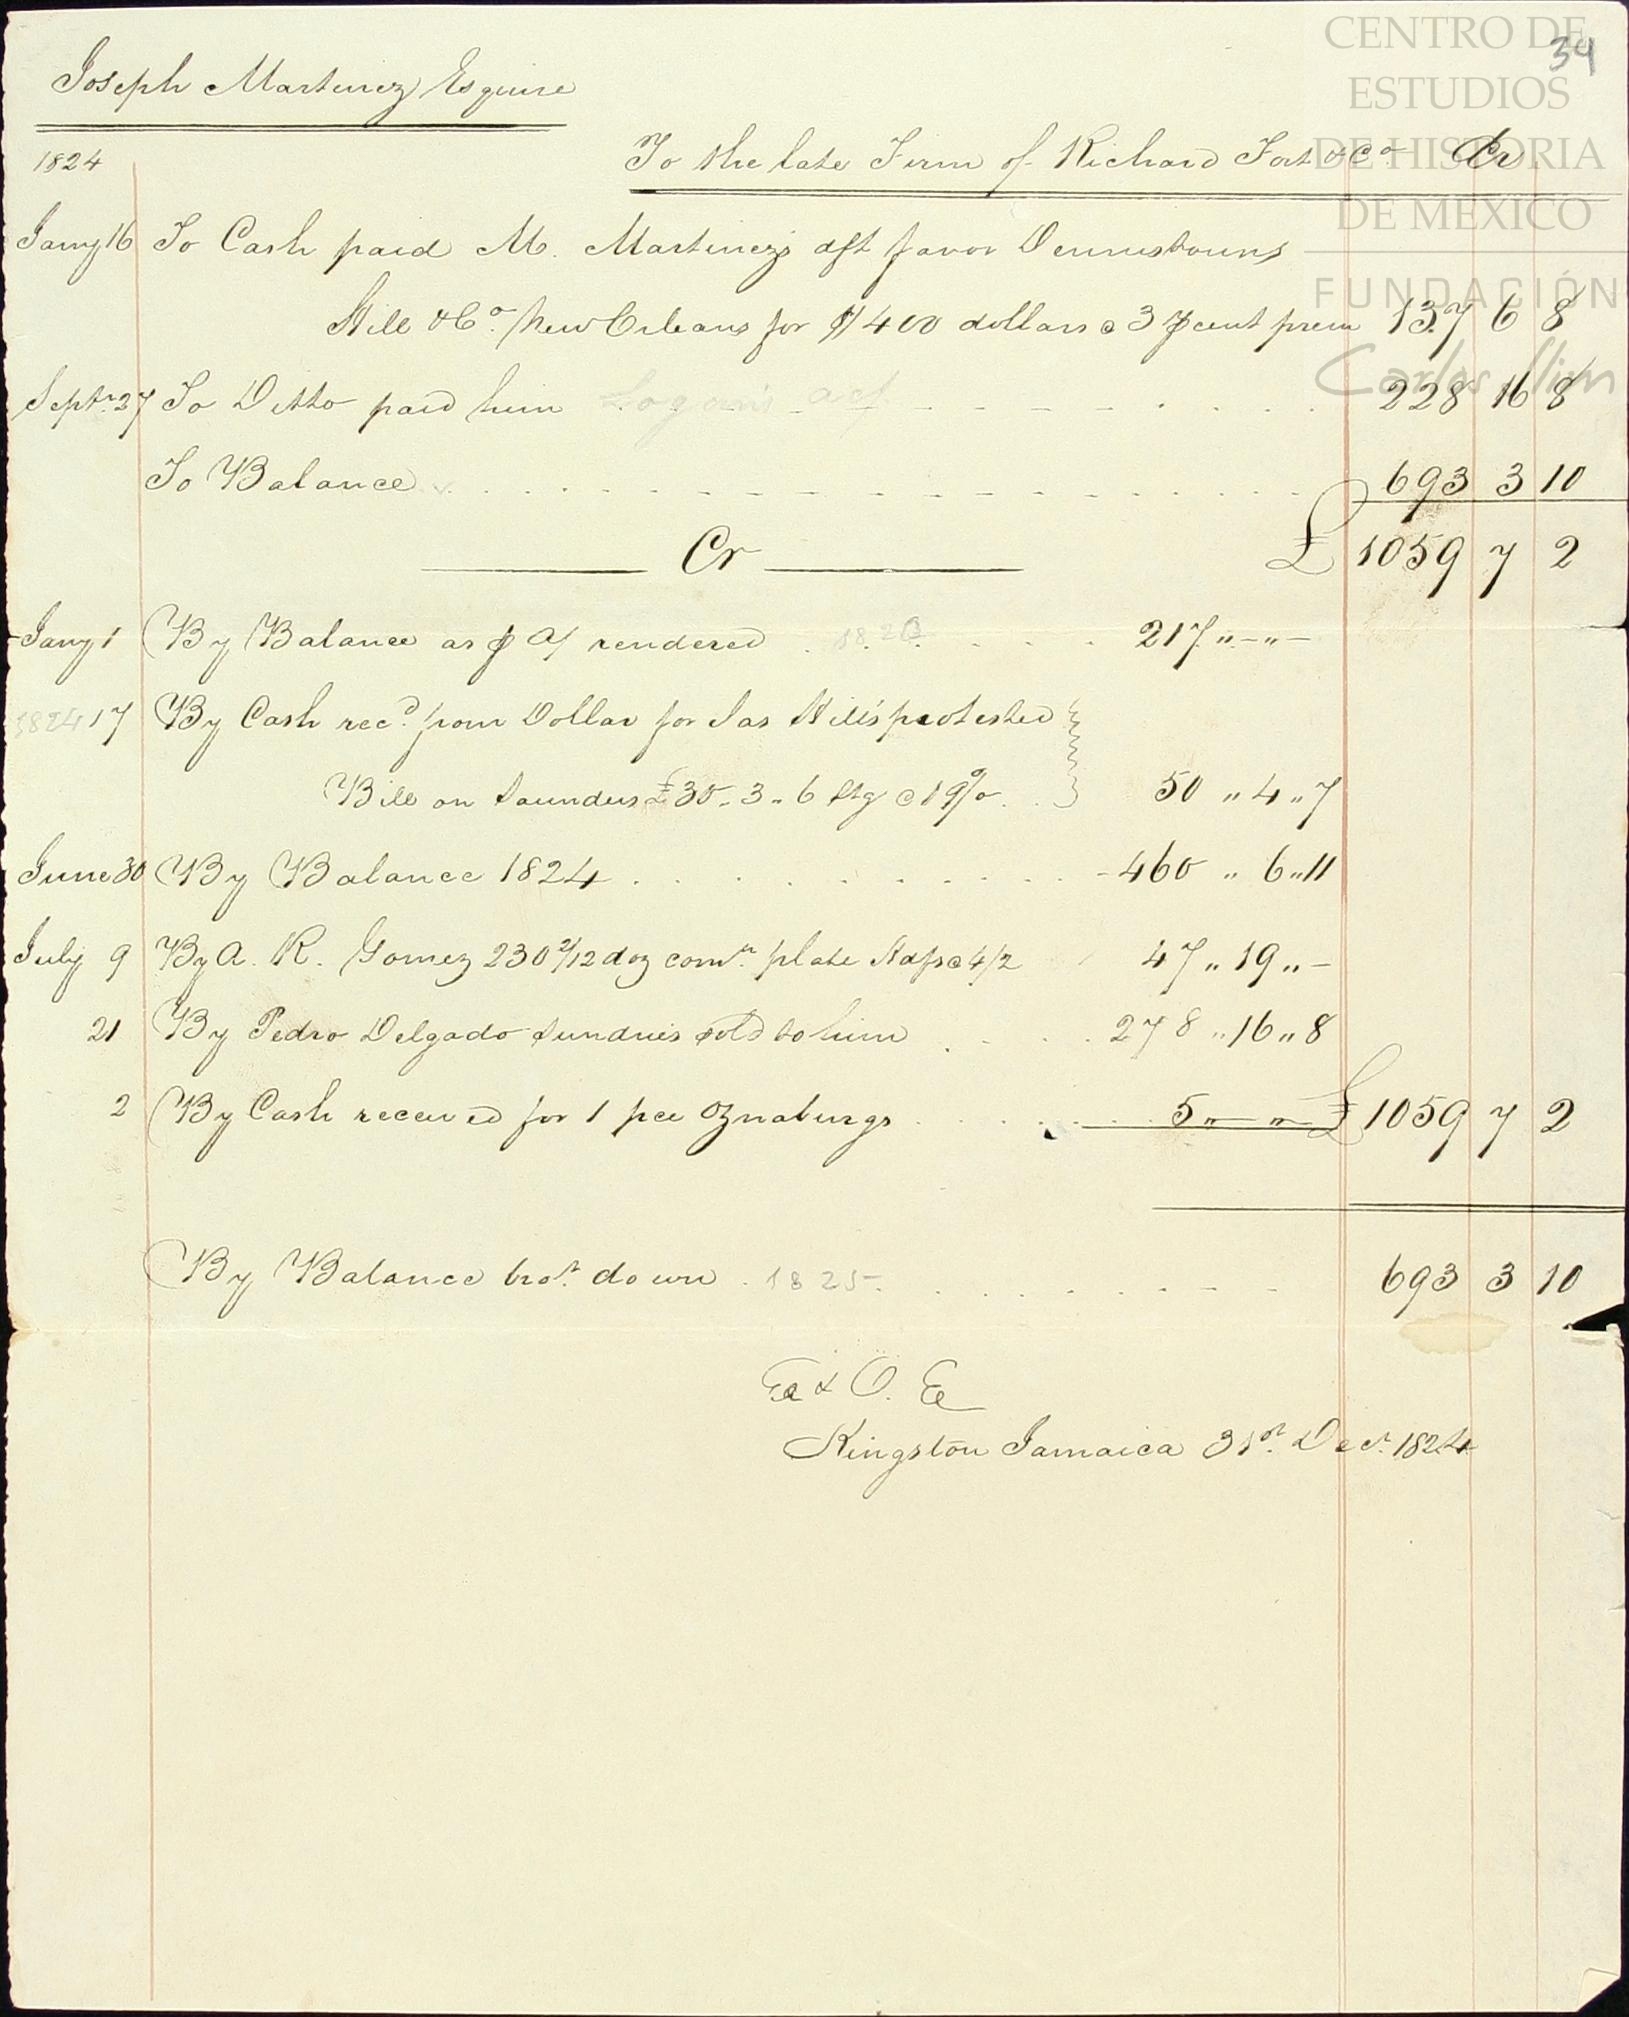 CENTRO DE
ESTUDIOS
DE HISTORIA
DE MÉXICO
FUNDACIÓN
Carlos Slim
34
Joseph Martinez Esquire
1824 To the late Firm of Richard Fort & Co. Dr
Jany 16 To Cash paid M. Martinez's dft favor Dennistouns
Hill & Co. New Orleans for $400 dollars @ 3 ⅌ cent prem 137 6 8
Septr. 27 To Ditto paid him Logan's a/c 228 16 8
To Balance 693 3 10
Cr £ 1059 7 2
Jany 1 By Balance as ⅌ a/ rendered 1823 217 " - " -
1824 17 By Cash recd. from Dollar for Jas Hill's protested
Bill on Saunders £30 - 3 " 6 Stg @ 19 %o 50 " 4 " 7
June 30 By Balance 1824 460 " 6 " 11
July 9 By A. R. Gomez 230 2/12 doz comn. plate Hdfs @ 4/2 47 " 19 " -
21 By Pedro Delgado Sundries sold to him 278 " 16 " 8
2 By Cash received for 1 pce Oznaburgs 5 " - " - £ 1059 7 2
By Balance brot. down 1825 693 3 10
E & O. E
Kingston Jamaica 31st. Decr. 1824